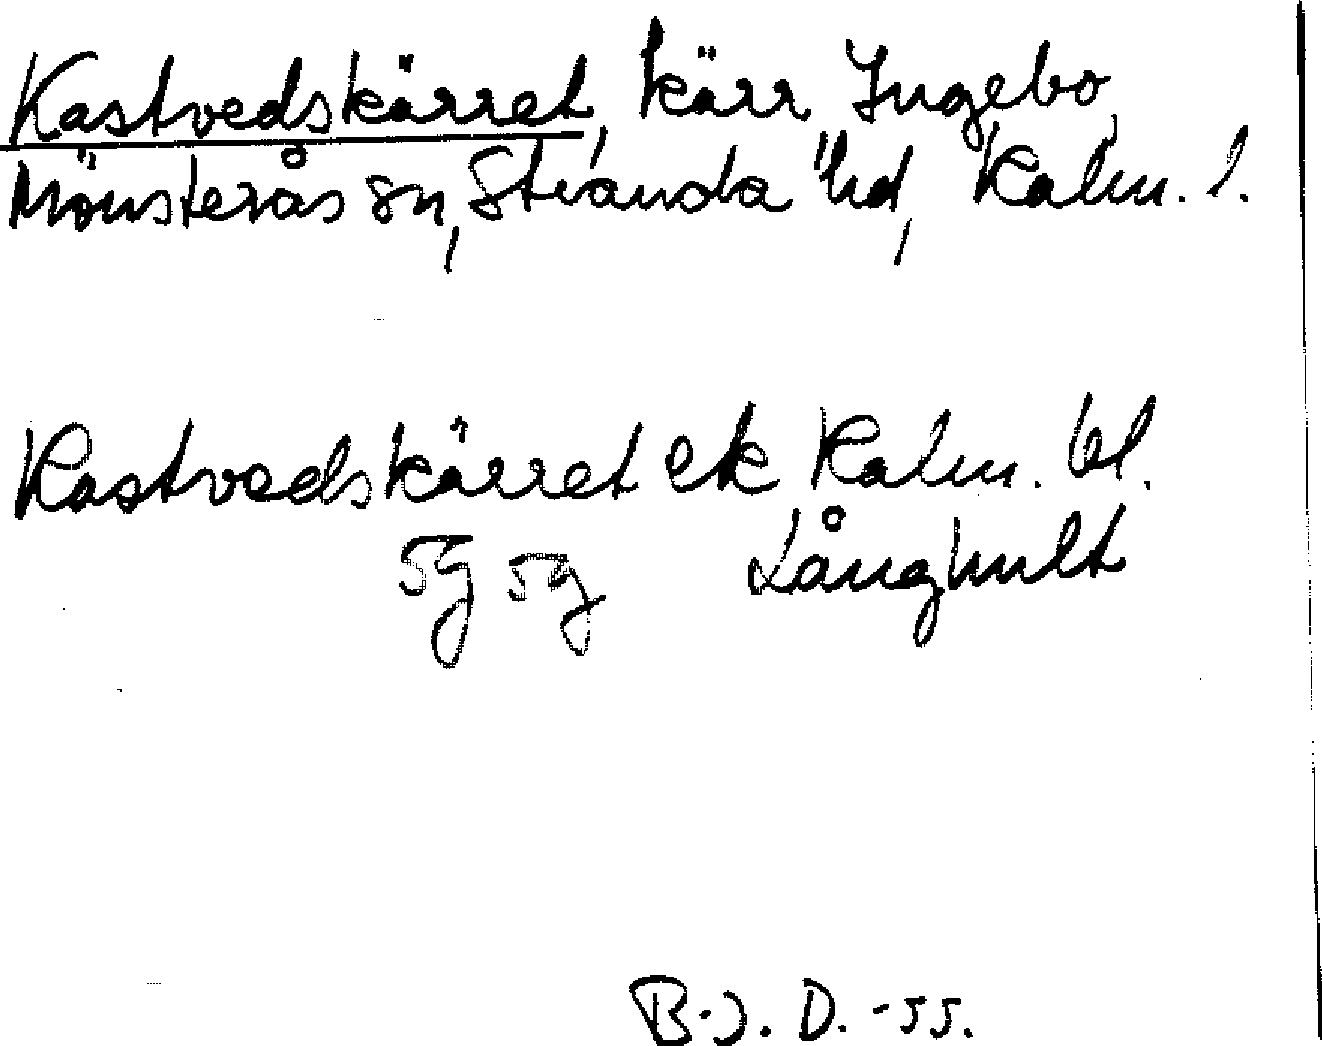 Kastvedskärret, kärr, Ingebo,
Mönsterås sn, Stranda hd, Kalm. l.
Kastvedskärret ek Kalm. bl.
5g 5g Långhult
B-J. D. -55.